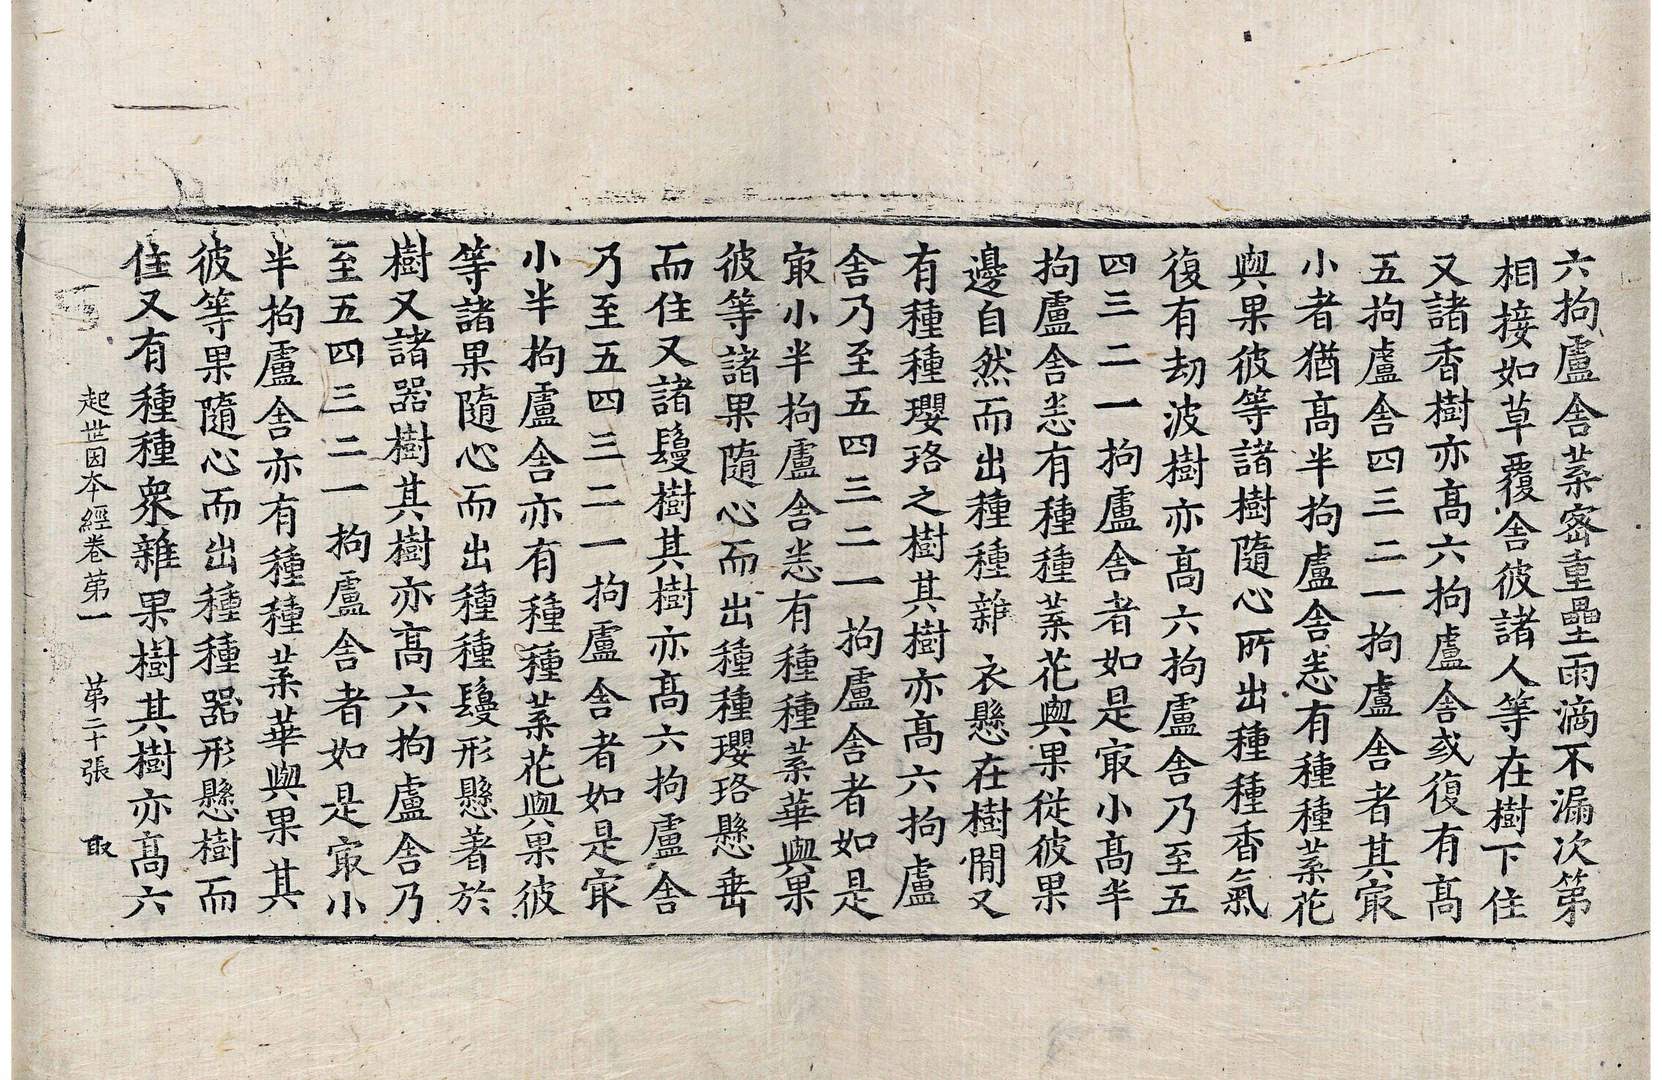 六拘盧舍葉密重壘雨滴不漏次第
相接如草覆舍彼諸人等在樹下住
又諸香樹亦高六拘盧舍或復有高
五拘盧舍四三二一拘盧舍者其㝡
小者猶高半拘盧舍悉有種種葉花
與果彼等諸樹隨心所出種種香氣
復有劫波樹亦高六拘盧舍乃至五
四三二一拘盧舍者如是㝡小高半
拘盧舍悉有種種葉花與果從彼果
邊自然而出種種雜衣懸在樹閒又
有種種瓔珞之樹其樹亦高六拘盧
舍乃至五四三二一拘盧舍者如是
㝡小半拘盧舍悉有種種葉華與果
彼等諸果隨心而出種種瓔珞懸垂
而住又諸鬘樹其樹亦高六拘盧舍
乃至五四三二一拘盧舍者如是㝡
小半拘盧舍亦有種種葉花與果彼
等諸果隨心而出種種鬘形懸著於
樹又諸器樹其樹亦高六拘盧舍乃
至五四三二一拘盧舍者如是㝡小
半拘盧舍亦有種種葉華與果其
彼等果隨心而出種種器形懸樹而
住又有種種衆雜果樹其樹亦高六
起世因本經卷第一 第二十張 取